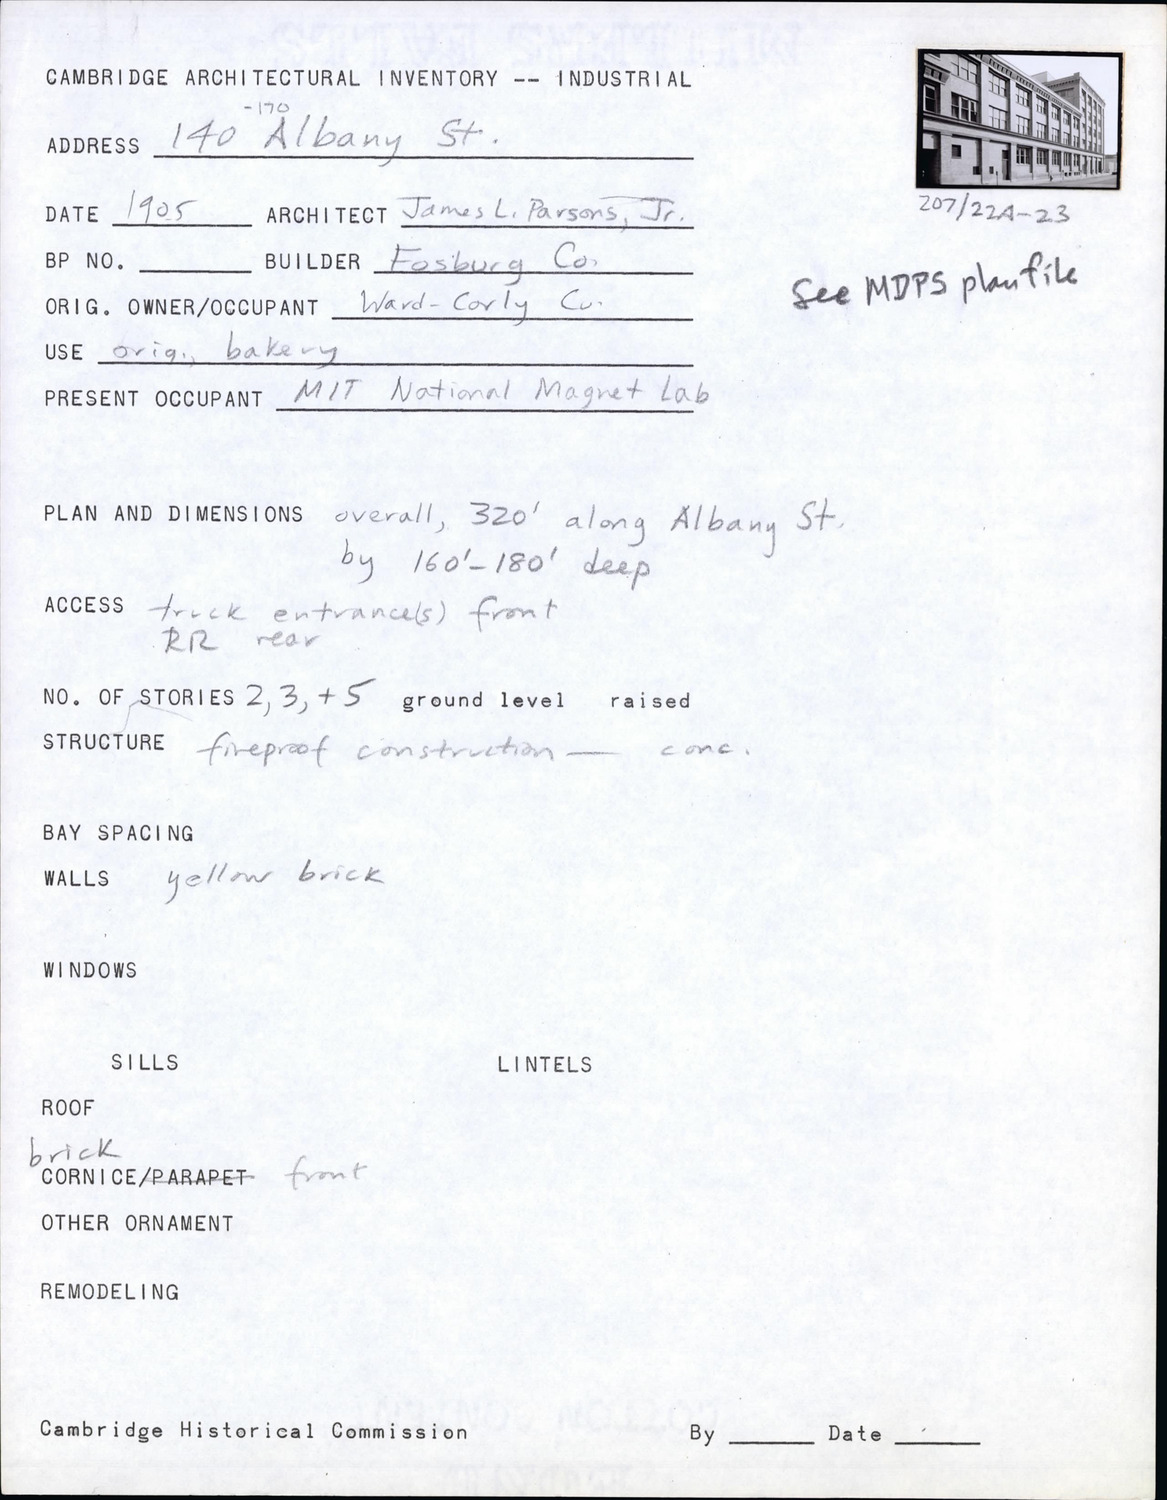 CAMBRIDGE ARCHITECTURAL INVENTORY -- INDUSTRIAL
-170
ADDRESS 140 Albany St.
DATE 1905 ARCHITECT James L. Parsons, Jr.
207/22A-23
BP NO. BUILDER Fosburg Co.
See MDPS plan file
ORIG. OWNER/OCCUPANT Ward-Corly Co.
USE orig., bakery
PRESENT OCCUPANT MIT National Magnet Lab
PLAN AND DIMENSIONS overall, 320' along Albany St.
by 160'-180' deep
ACCESS truck entrance(s) front
RR rear
NO. OF STORIES 2, 3, + 5 ground level raised
STRUCTURE fireproof construction — conc.
BAY SPACING
WALLS yellow brick
WINDOWS
SILLS LINTELS
ROOF
brick
CORNICE/PARAPET front
OTHER ORNAMENT
REMODELING
Cambridge Historical Commission By Date